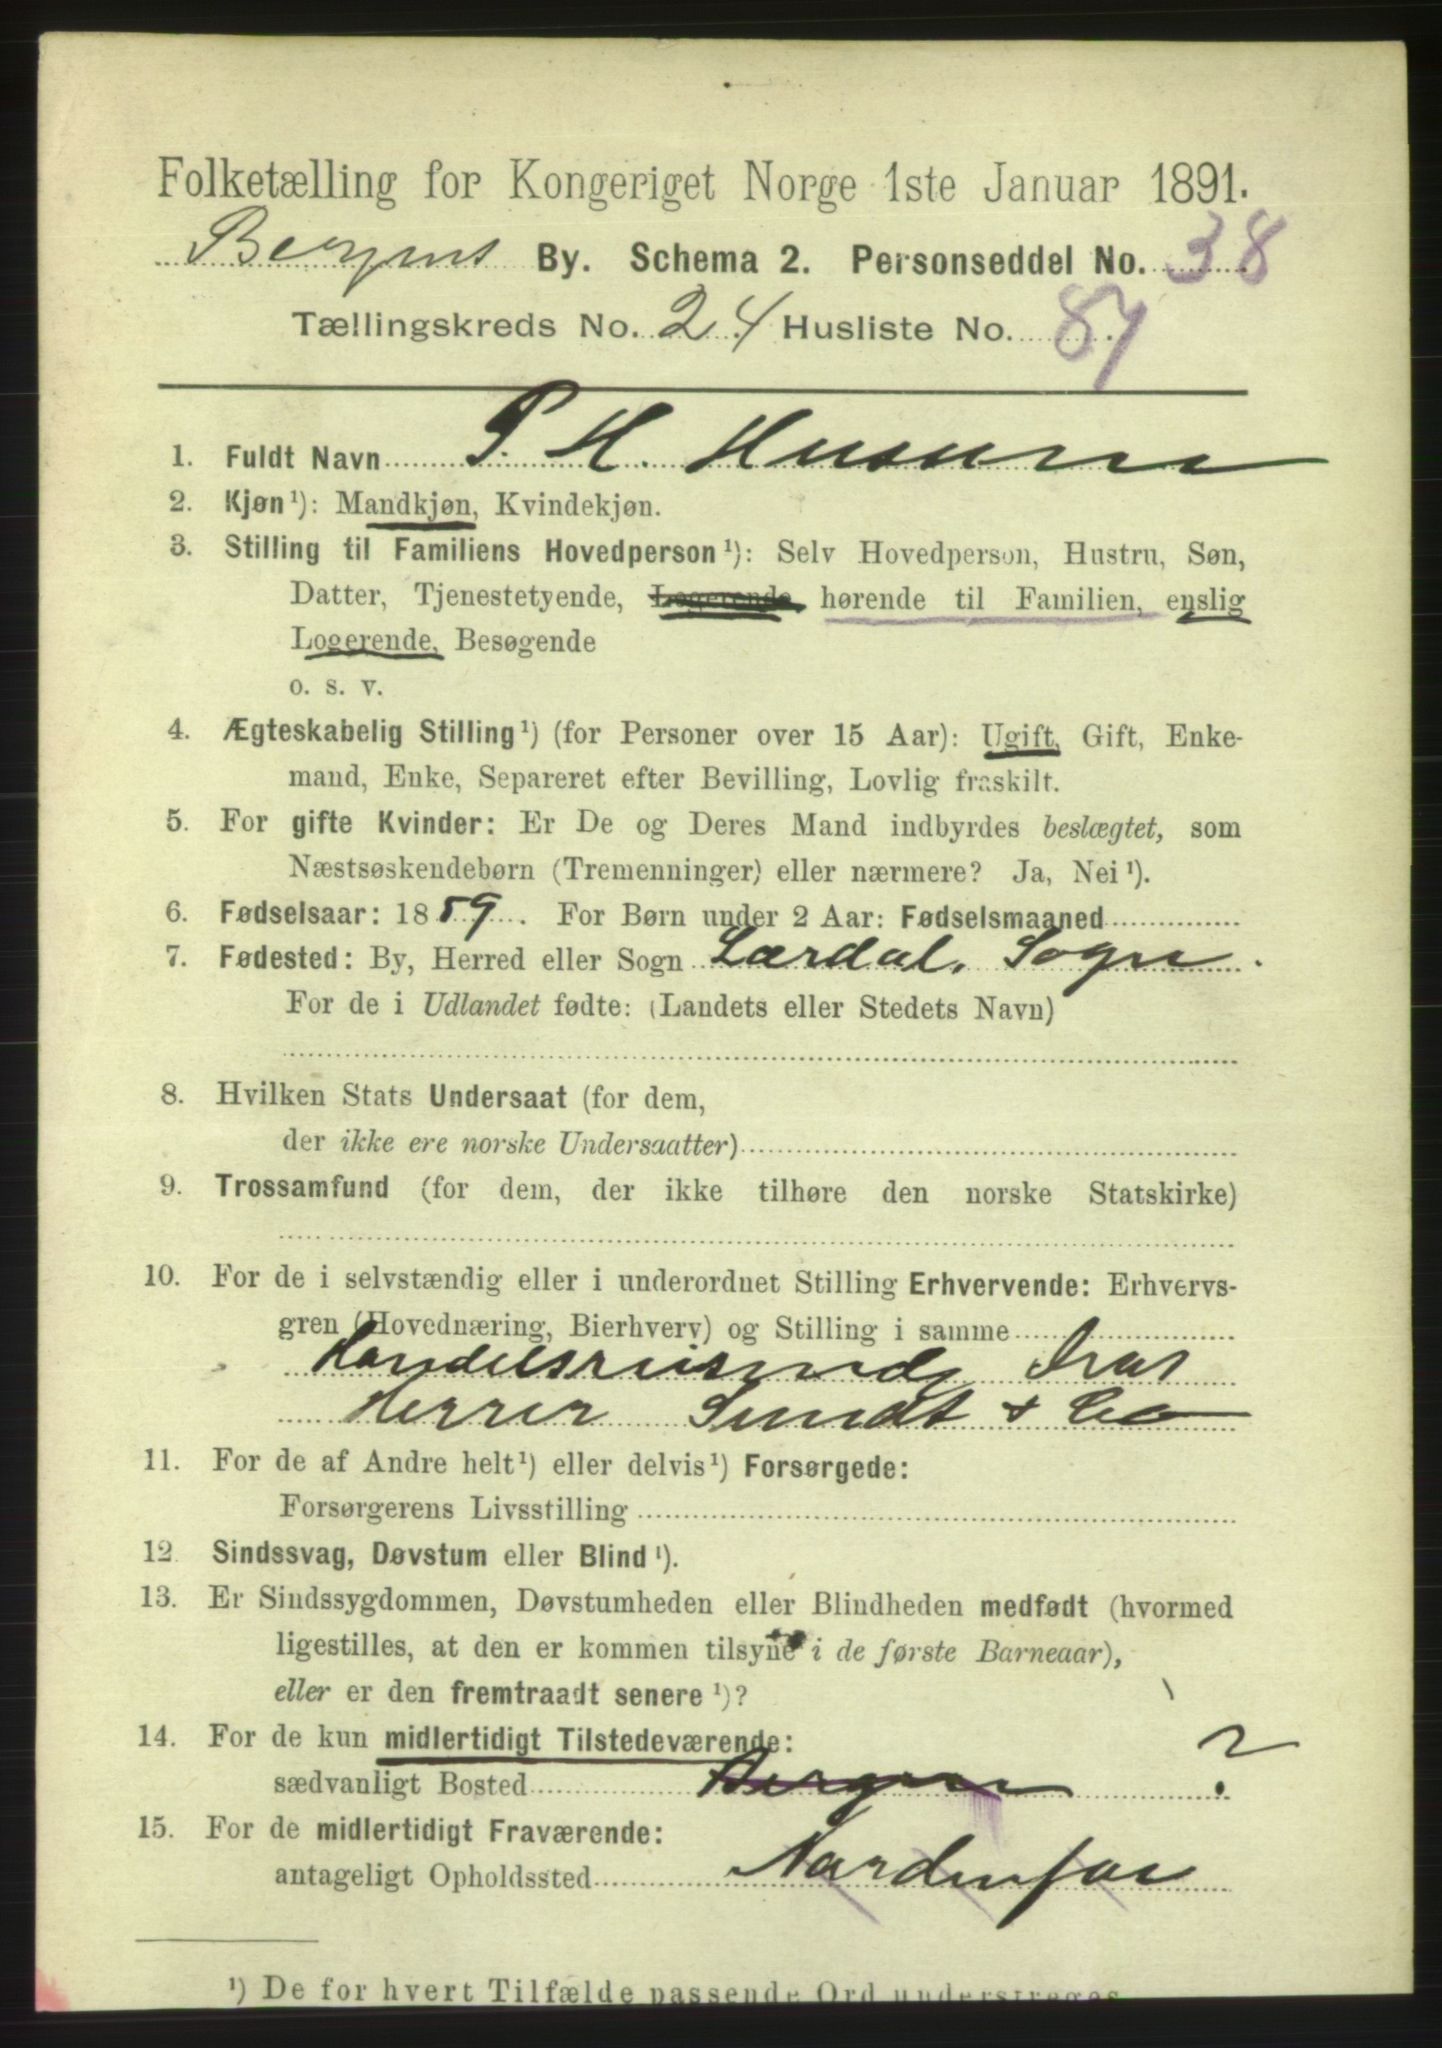 Folketælling for Kongeriget Norge 1ste Januar 1891.
Bergens By. Schema 2. Personseddel No. 38
Tællingskreds No. 24 Husliste No. 87
1. Fuldt Navn P. H. Husum
2. Kjøn ¹): Mandkjøn, Kvindekjøn.
3. Stilling til Familiens Hovedperson ¹): Selv Hovedperson, Hustru, Søn,
Datter, Tjenestetyende, Logerende, hørende til Familien, enslig
Logerende, Besøgende
o. s. v.
4. Ægteskabelig Stilling ¹) (for Personer over 15 Aar): Ugift, Gift, Enke-
mand, Enke, Separeret efter Bevilling, Lovlig fraskilt.
5. For gifte Kvinder: Er De og Deres Mand indbyrdes beslægtet, som
Næstsøskendebørn (Tremenninger) eller nærmere? Ja, Nei ¹).
6. Fødselsaar: 1859. For Børn under 2 Aar: Fødselsmaaned
7. Fødested: By, Herred eller Sogn Lærdal, Sogn
For de i Udlandet fødte: (Landets eller Stedets Navn)
8. Hvilken Stats Undersaat (for dem,
der ikke ere norske Undersaatter)
9. Trossamfund (for dem, der ikke tilhøre den norske Statskirke)
10. For de i selvstændig eller i underordnet Stilling Erhvervende: Erhvervs-
gren (Hovednæring, Bierhverv) og Stilling i samme
Handelsreisende hos
Herrer Sundt & Co
11. For de af Andre helt ¹) eller delvis ¹) Forsørgede:
Forsørgerens Livsstilling
12. Sindssvag, Døvstum eller Blind ¹).
13. Er Sindssygdommen, Døvstumheden eller Blindheden medfødt (hvormed
ligestilles, at den er kommen tilsyne i de første Barneaar),
eller er den fremtraadt senere ¹)?
14. For de kun midlertidigt Tilstedeværende:
sædvanligt Bosted Bergen ?
15. For de midlertidigt Fraværende:
antageligt Opholdssted Nordenfor
¹) De for hvert Tilfælde passende Ord understreges